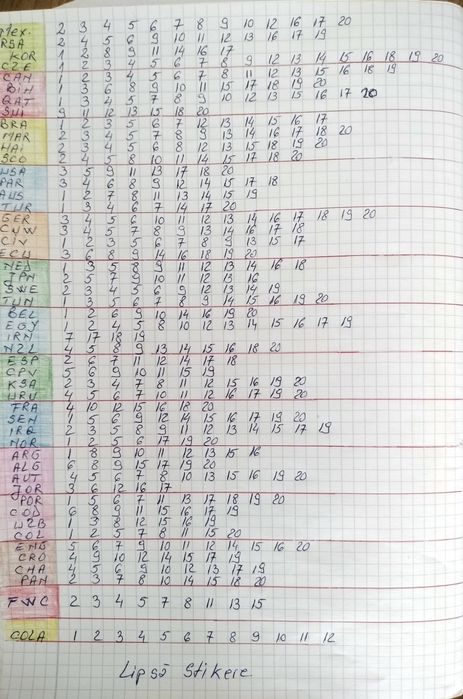 Mex. 2 3 4 5 6 7 8 9 10 12 16 17 20
RSA 2 4 5 6 9 10 11 12 13 16 17 19
KOR 1 2 8 9 11 14 16 17
CZE 1 2 3 4 5 6 7 8 9 12 13 14 15 16 18 19 20
CAN 1 2 3 4 5 6 7 8 11 12 13 15 16 18 19
BIH 1 3 6 8 9 10 11 15 17 18 19 20
QAT 1 3 4 5 7 8 9 10 12 13 15 16 17 20
SUI 9 11 12 13 15 18 20
BRA 1 2 3 5 6 7 12 13 14 15 16 17
MAR 2 3 4 5 7 8 9 13 14 16 17 18 20
HAI 2 3 4 5 6 8 12 13 15 18 19 20
SCO 2 4 5 8 10 11 14 15 17 18 20
USA 3 5 9 11 13 17 18 20
PAR 3 4 6 8 9 12 14 15 17 18
AUS 1 2 7 8 11 13 14 15 19
TUR 1 3 4 6 7 14 17 20
GER 3 4 5 6 10 11 12 13 14 16 17 18 19 20
CUW 3 4 5 7 8 9 13 14 16 17 18
CIV 1 2 3 5 6 7 8 9 13 15 17
ECU 3 6 8 9 14 16 18 19 20
NED 1 3 5 8 9 11 12 13 14 16 18
JPN 2 5 7 9 10 11 12 13 16
SWE 2 3 4 5 6 9 12 13 14 19
TUN 1 3 5 6 7 8 9 14 15 16 19 20
BEL 1 2 6 9 10 14 16 19 20
EGY 1 2 4 5 8 10 12 13 14 15 16 17 19
IRN 7 17 18 19
NZL 4 5 8 9 13 14 15 16 18 20
ESP 2 6 7 11 12 14 17 18
CPV 5 6 9 10 11 15 19
KSA 2 3 4 7 8 11 12 15 16 19 20
URU 4 5 6 7 10 11 12 16 17 19 20
FRA 4 10 12 15 16 18 20
SEN 1 5 6 9 12 14 15 16 17 19 20
IRQ 2 3 5 8 9 11 12 13 14 15 17 19
NOR 1 2 5 6 17 19 20
ARG 1 8 9 10 11 12 13 15 16
ALG 6 8 9 15 17 19 20
AUT 4 5 6 7 8 10 13 15 16 19 20
JOR 3 6 12 16 17
POR 1 5 6 7 11 13 17 18 19 20
COD 6 8 9 11 15 16 17 19
UZB 1 3 8 12 15 16 19
COL 1 2 5 7 8 11 15 20
ENG 5 6 7 9 10 11 12 14 15 16 20
CRO 4 9 10 12 14 15 17 19
GHA 4 5 6 9 10 12 13 17 19
PAN 2 3 7 8 10 14 15 18 20
FWC 2 3 4 5 7 8 11 13 15
COLA 1 2 3 4 5 6 7 8 9 10 11 12
Lipsă Stikere